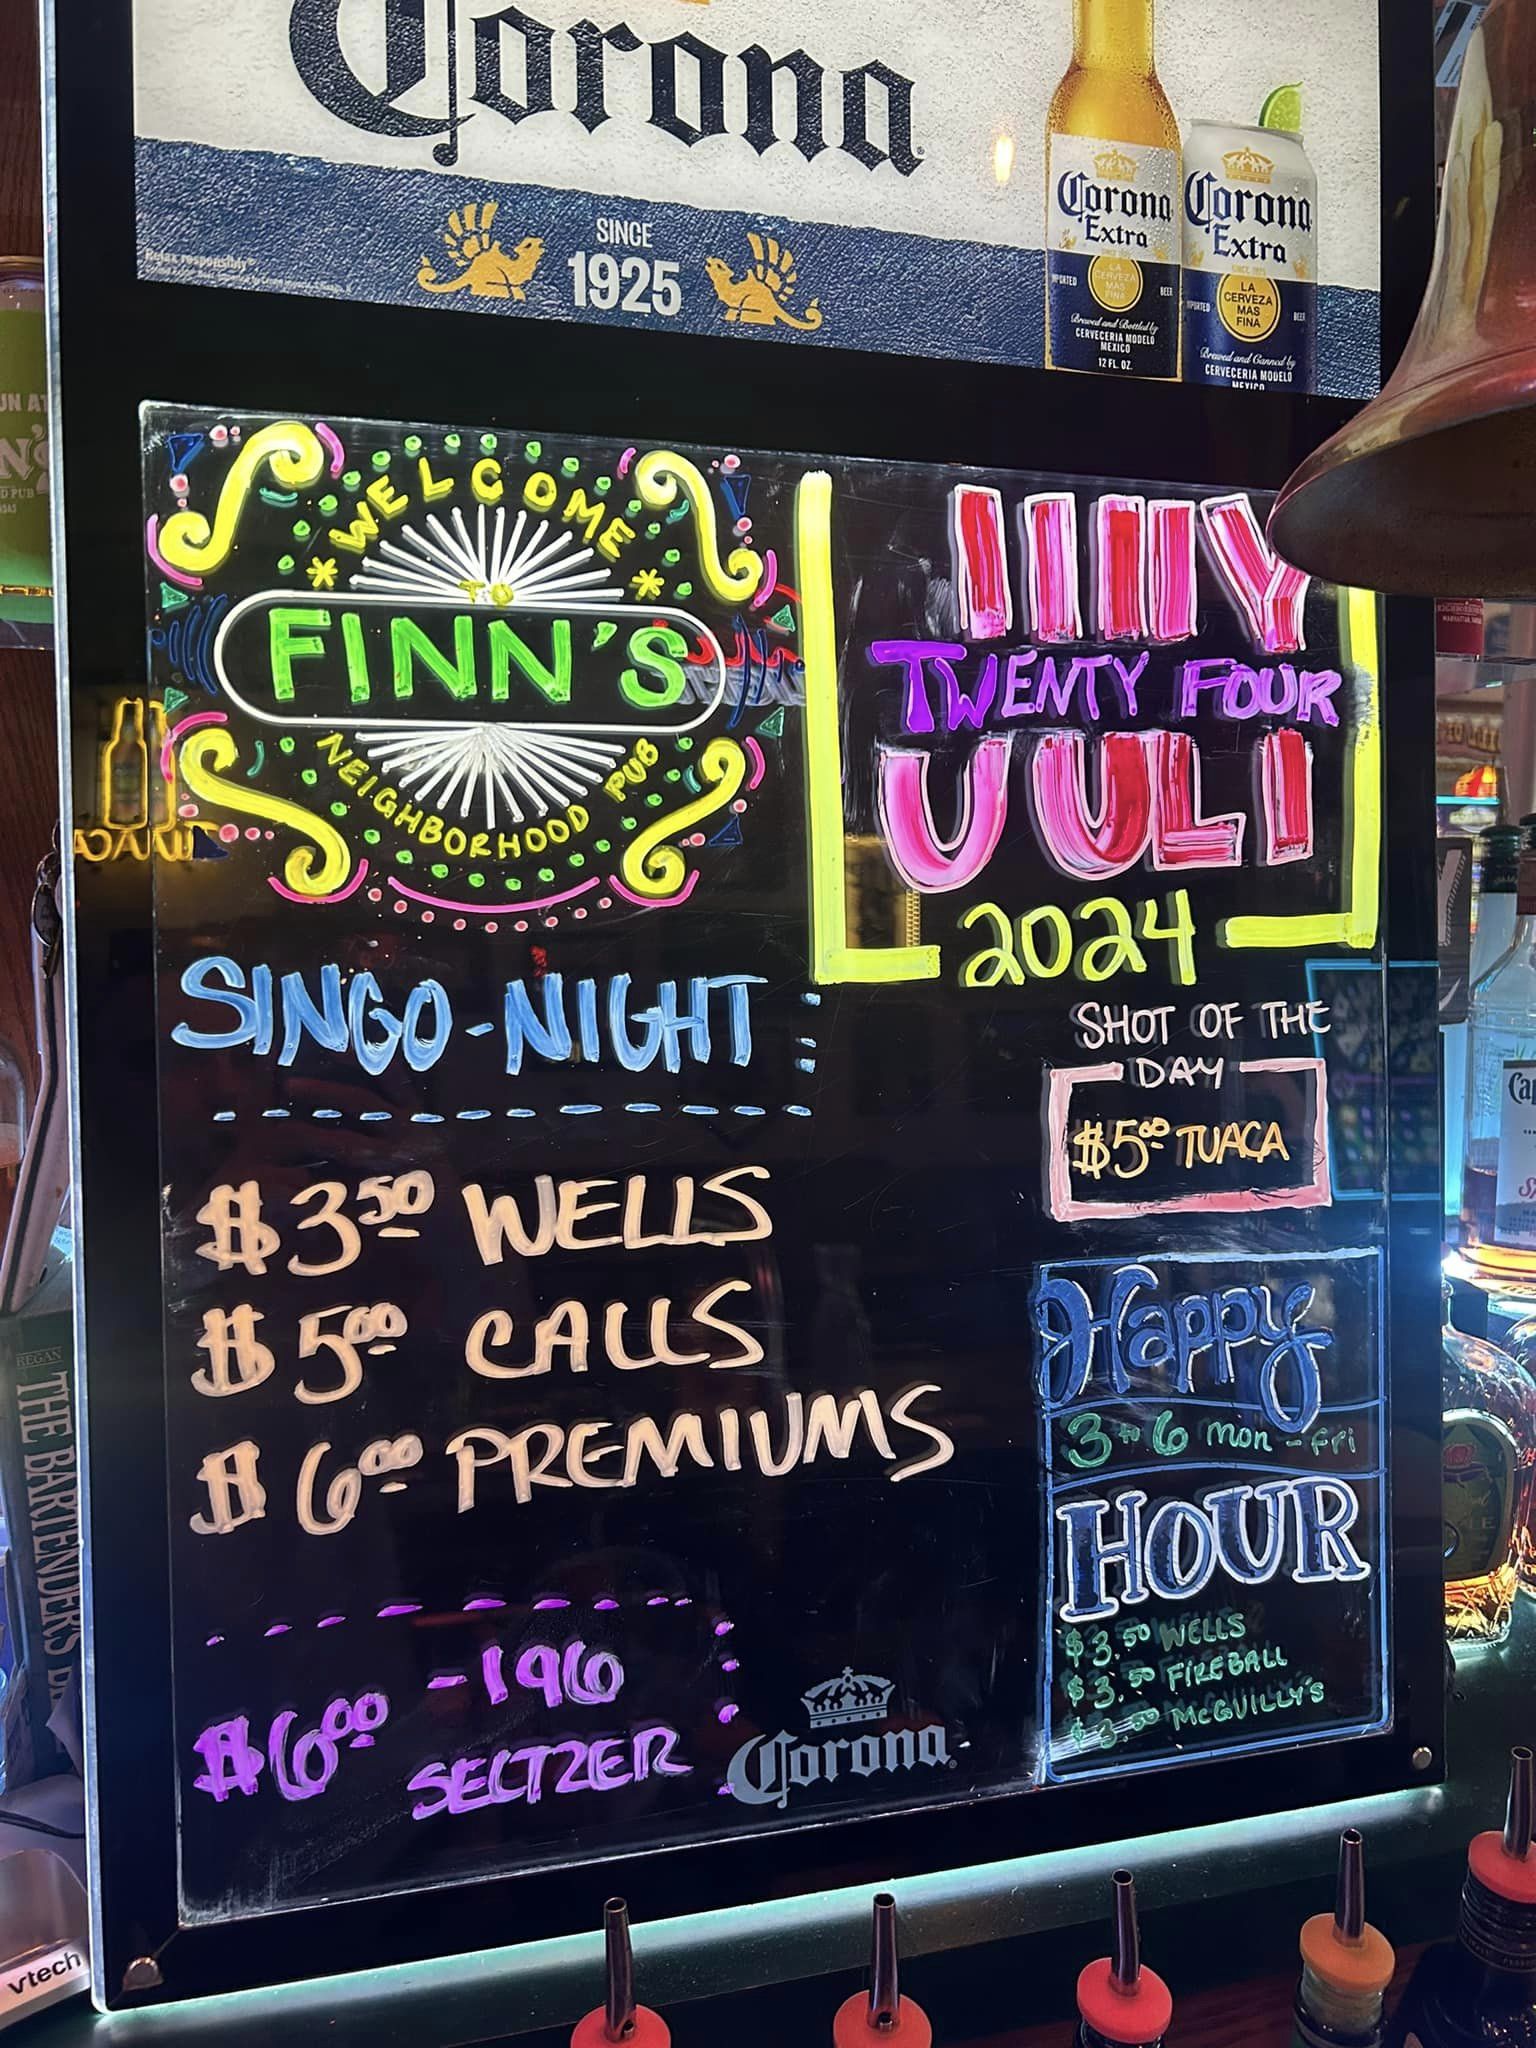 Corona
SINCE
1925
Relax responsibly®
Corona
Extra
LA
CERVEZA
MAS
FINA
IMPORTED
BEER
Brewed and Bottled by
CERVECERIA MODELO
MEXICO
12 FL. OZ.
Corona
Extra
LA
CERVEZA
MAS
FINA
IMPORTED
BEER
Brewed and Canned by
CERVECERIA MODELO
MEXICO
WELCOME
TO
FINN'S
NEIGHBORHOOD PUB
TWENTY FOUR
JULI
2024
SINGO-NIGHT:
$3.50 WELLS
$5.00 CALLS
$6.00 PREMIUMS
$6.00 -196
SELTZER
Corona
SHOT OF THE
DAY
$5.00 TUACA
Happy
3 to 6 mon - fri
HOUR
$3.50 WELLS
$3.50 FIREBALL
$3.50 McGUILLY'S
REGAN
THE BARTENDER'S
vtech